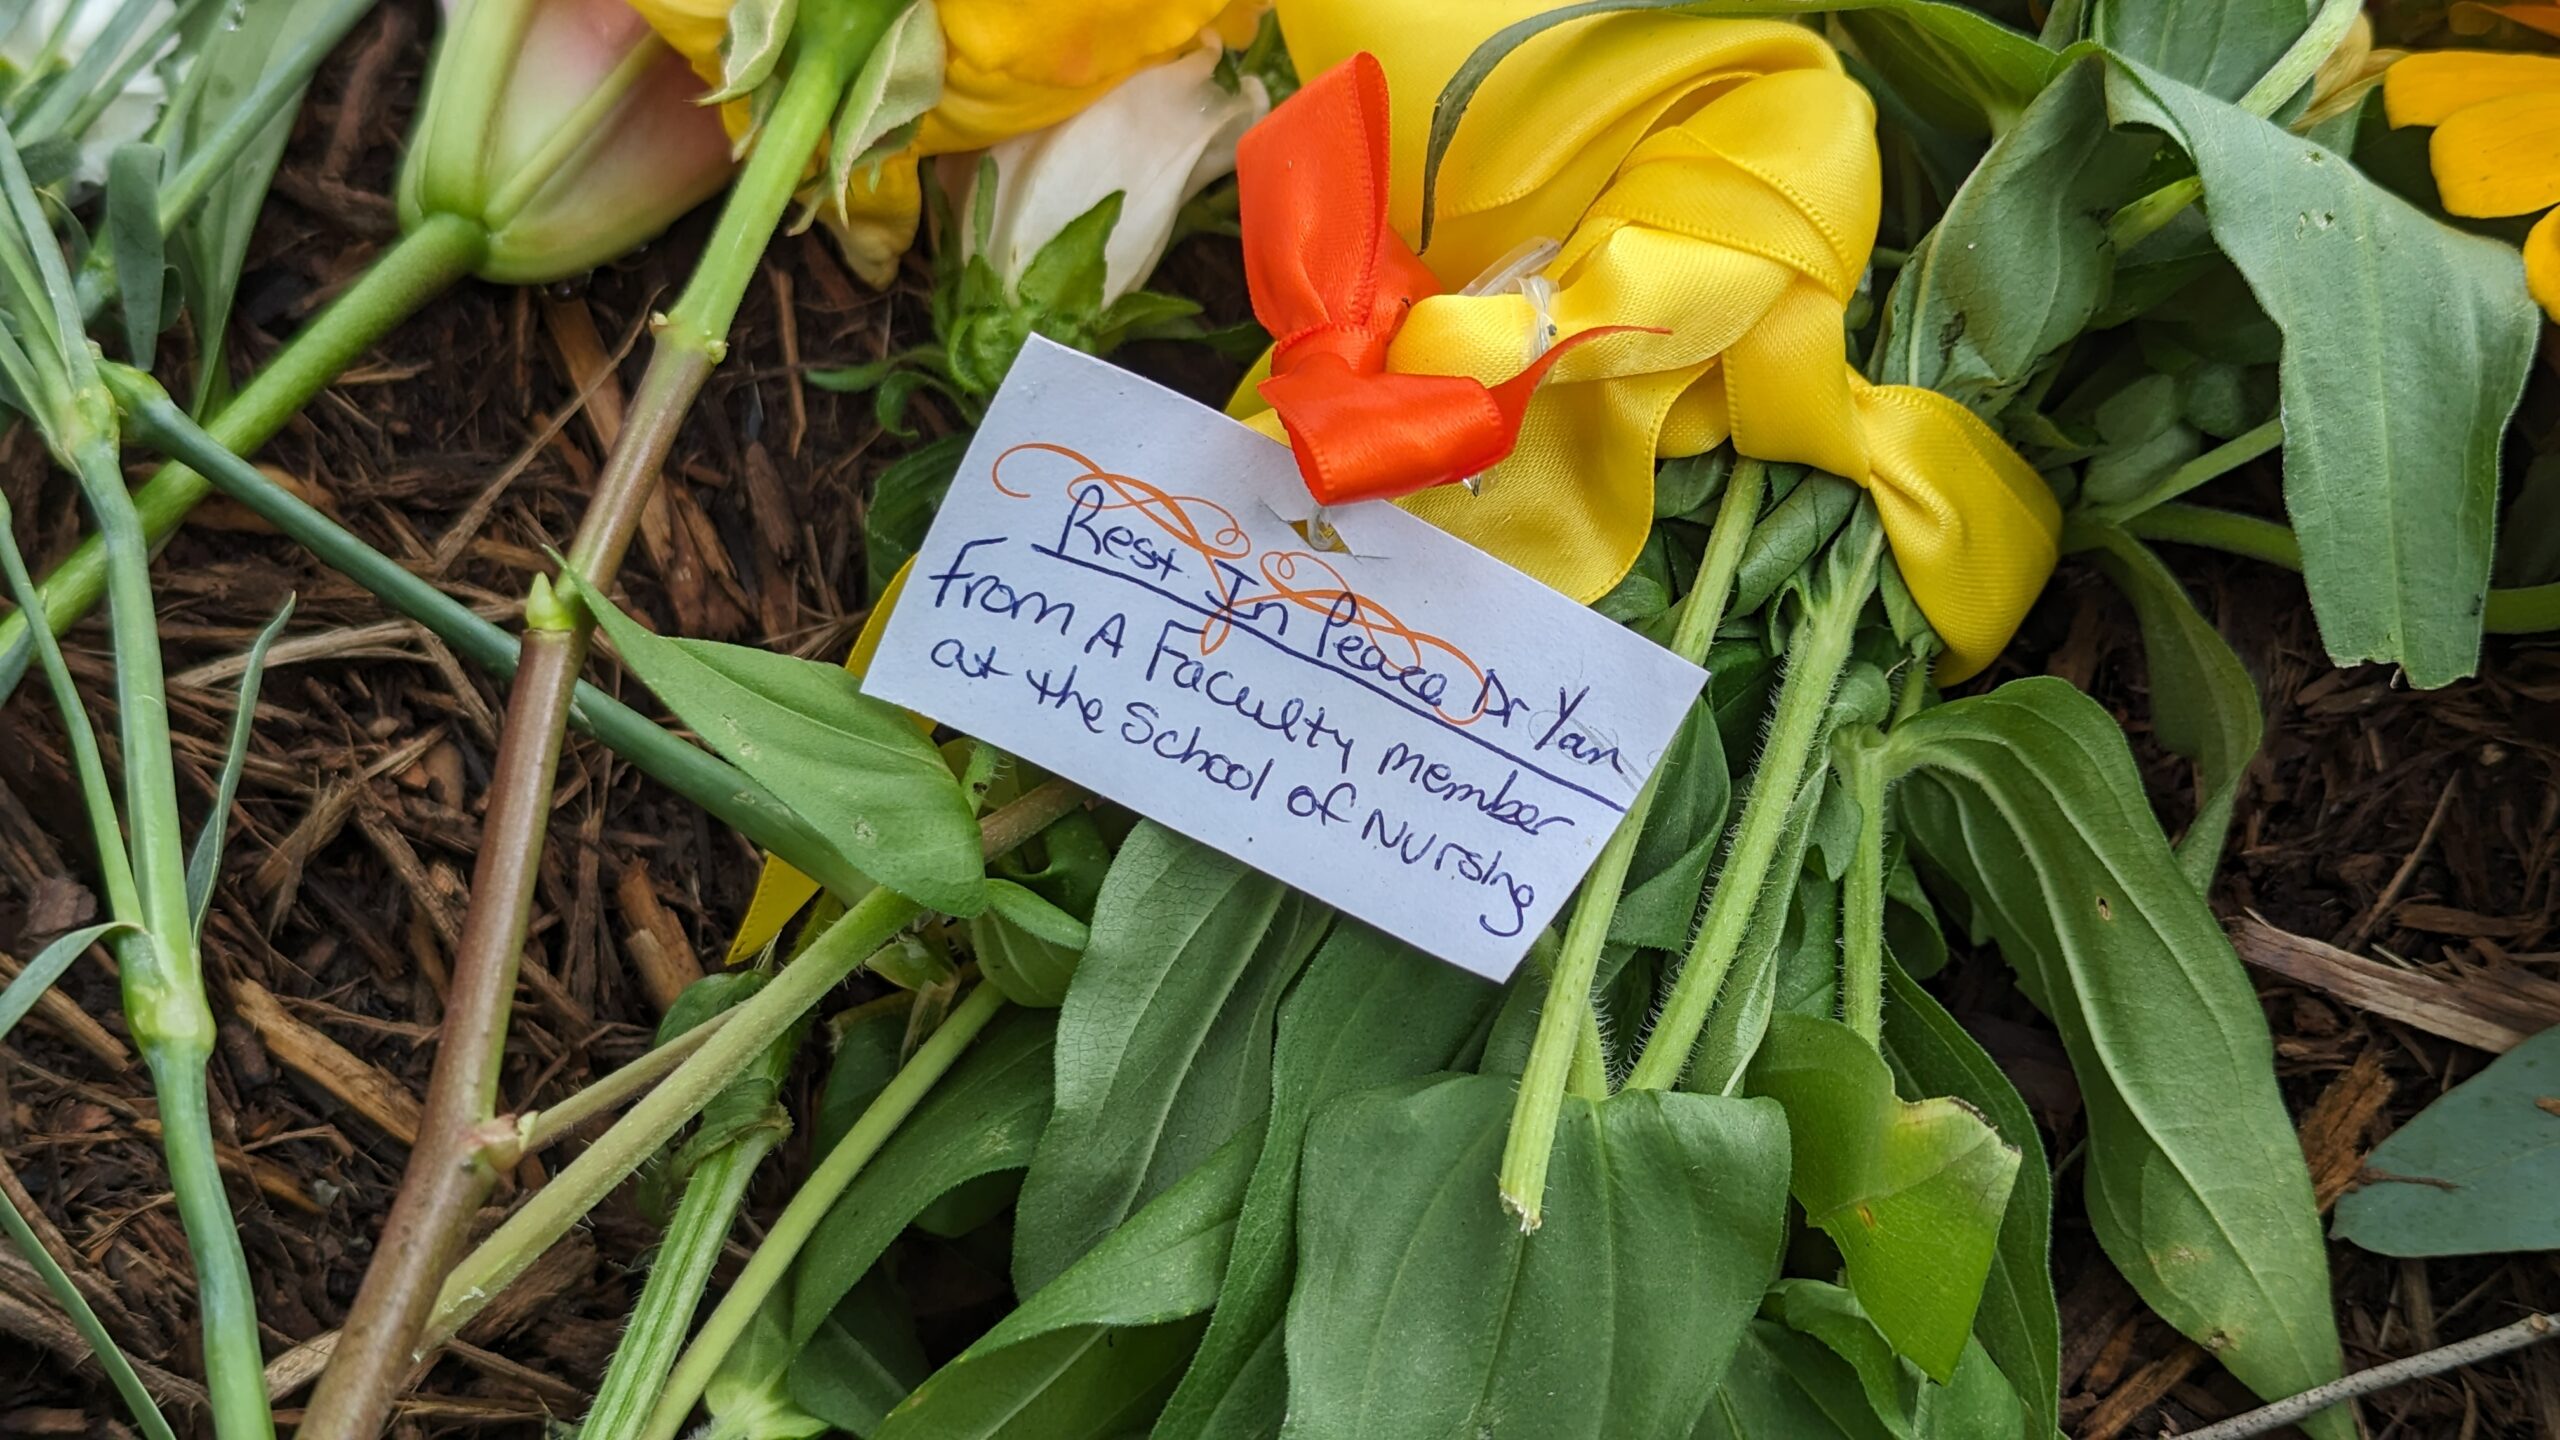 Rest In Peace Dr Yan
From A Faculty member
at the School of Nursing